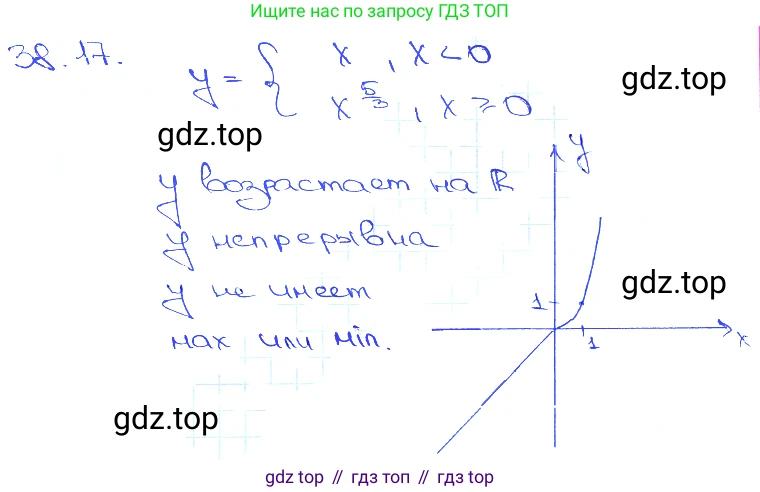 Ищите нас по запросу ГДЗ ТОП
38.17.
y = { x, x < 0
x^{5/3}, x ⩾ 0
gdz.top
gdz.top
y
y возрастает на R
y непрерывна
y не имеет
gdz.top
1
max или min.
1
x
gdz.top
gdz top // гдз топ // gdz top